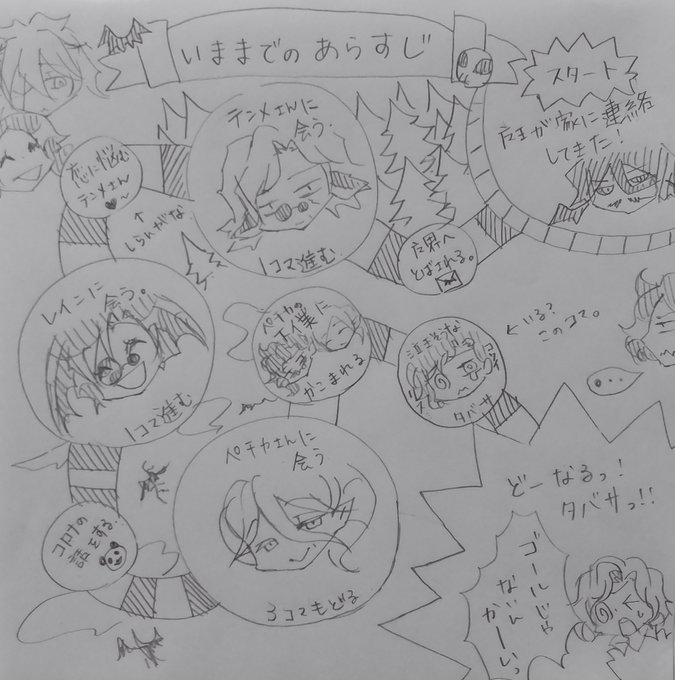 いままでの あらすじ
スタート
が家に連絡
してきた!
テンメさんに
会う。
1コマ進む
恋に悩む
テンメさん
↑
しらんがな
とばされる。
レインに
会う。
1コマ進む
ペチカの
かこまれる
←いる?
このコマ。
泣きそうな
タバサ
ペチカさんに
会う
3コマもどる
コロナの
話をする。
どーなるっ!
タバサっ!!
ゴールじゃ
なぃん
かーいっ